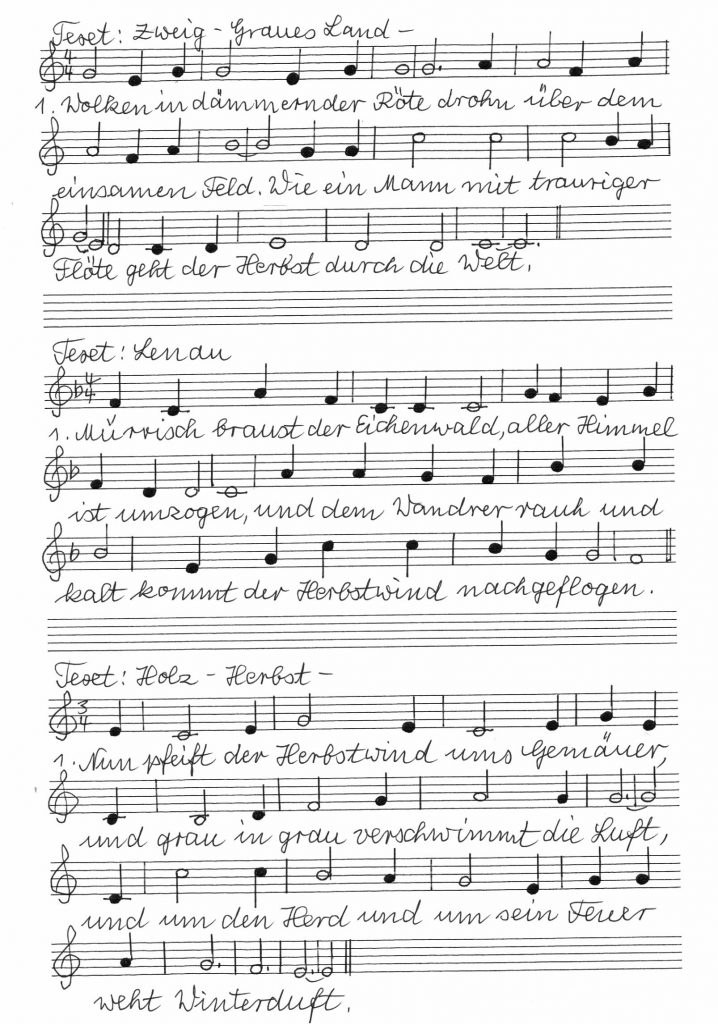 Text: Zweig - Graues Land -
4 4
1. Wolken in dämmernder Röte drohn über dem
einsamen Feld. Wie ein Mann mit trauriger
Flöte geht der Herbst durch die Welt.
Text: Lenau
4 4
1. Mürrisch braust der Eichenwald, aller Himmel
ist umzogen, und dem Wandrer rauh und
kalt kommt der Herbstwind nachgeflogen.
Text: Holz - Herbst -
3 4
1. Nun pfeift der Herbstwind ums Gemäuer,
und grau in grau verschwimmt die Luft,
und um den Herd und um sein Feuer
weht Winterduft.